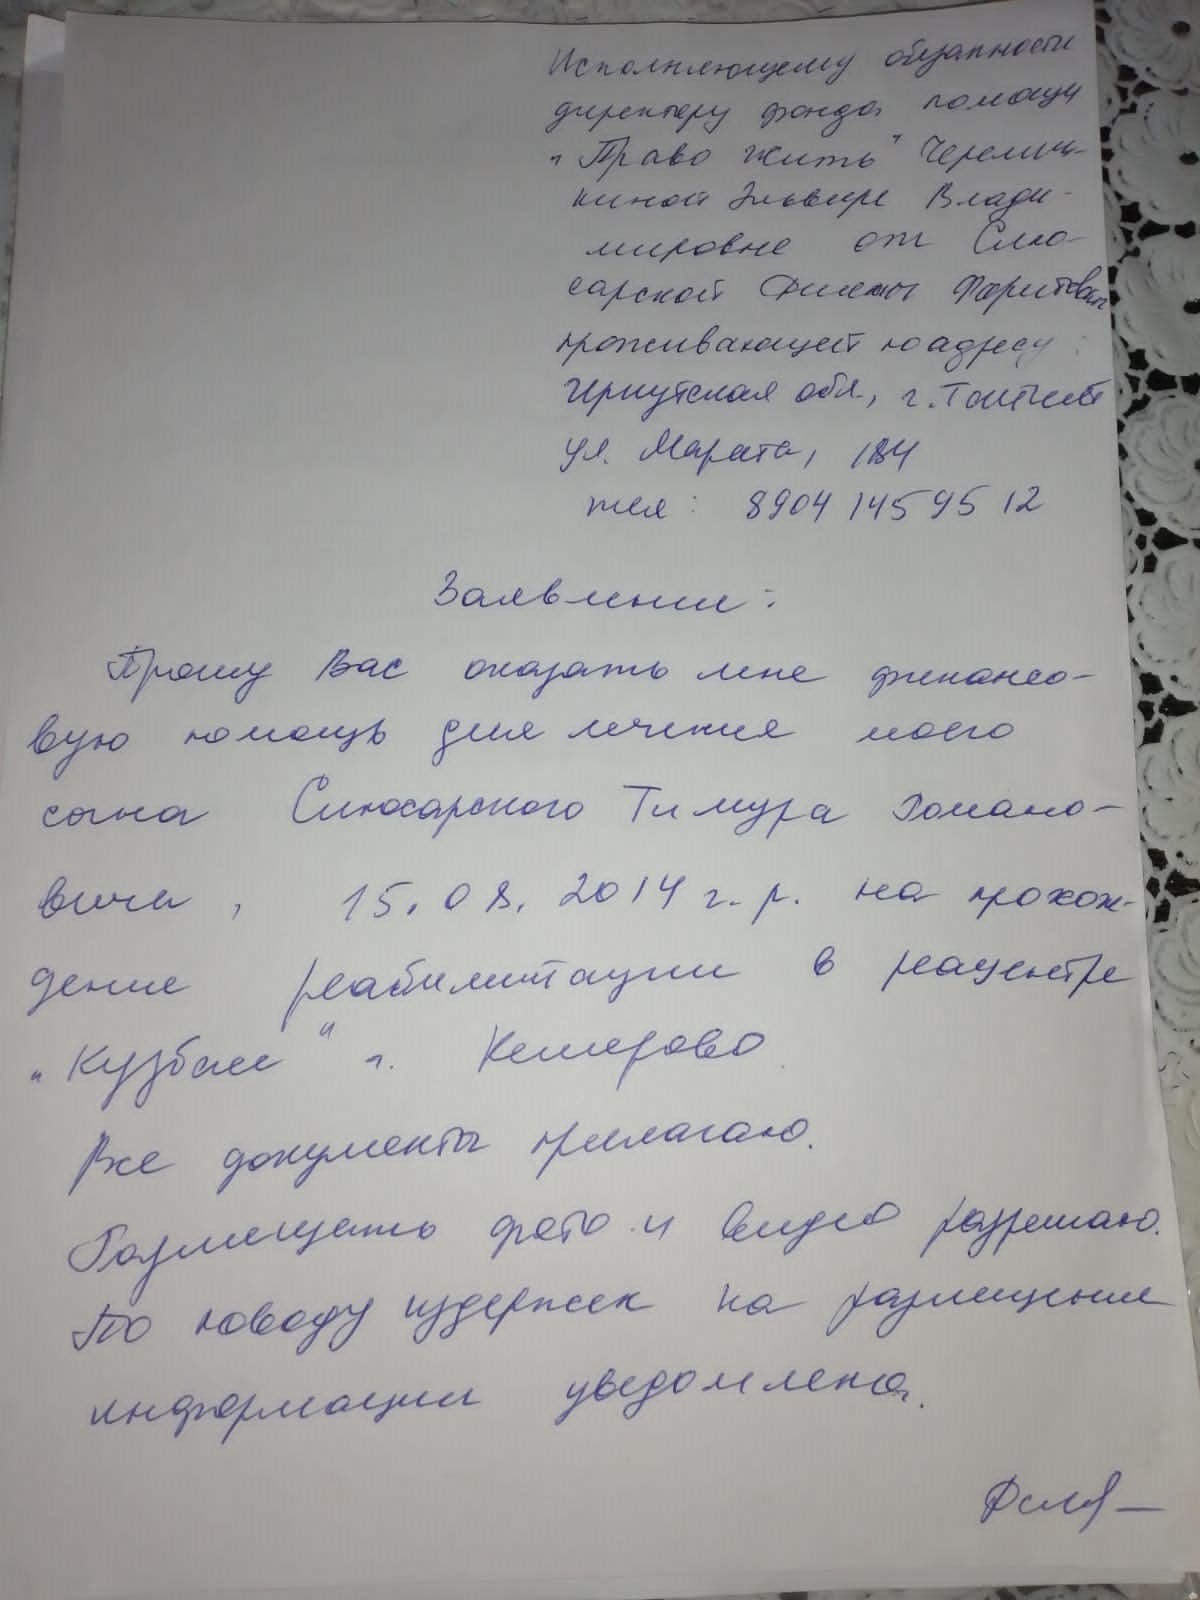 Исполняющему обязаности
директору фонда помощи
"Право жить" Черемш-
киной Эльвире Влади-
мировне от Слю-
сарской Фаритовны
проживающей по адресу:
Иркутская обл., г. Тайшет
ул. Марата, 184
тел: 8904 145 95 12
Заявление:
Прошу Вас оказать мне финансо-
вую помощь для лечения моего
сына Слюсарского Тимура Романо-
вича, 15.08.2014 г.р. на прохож-
дение реабилитации в реацентре
"Кузбасс" г. Кемерово
Все документы прилагаю.
Размещать фото и видео разрешаю.
По поводу издержек на размещение
информации уведомлена.